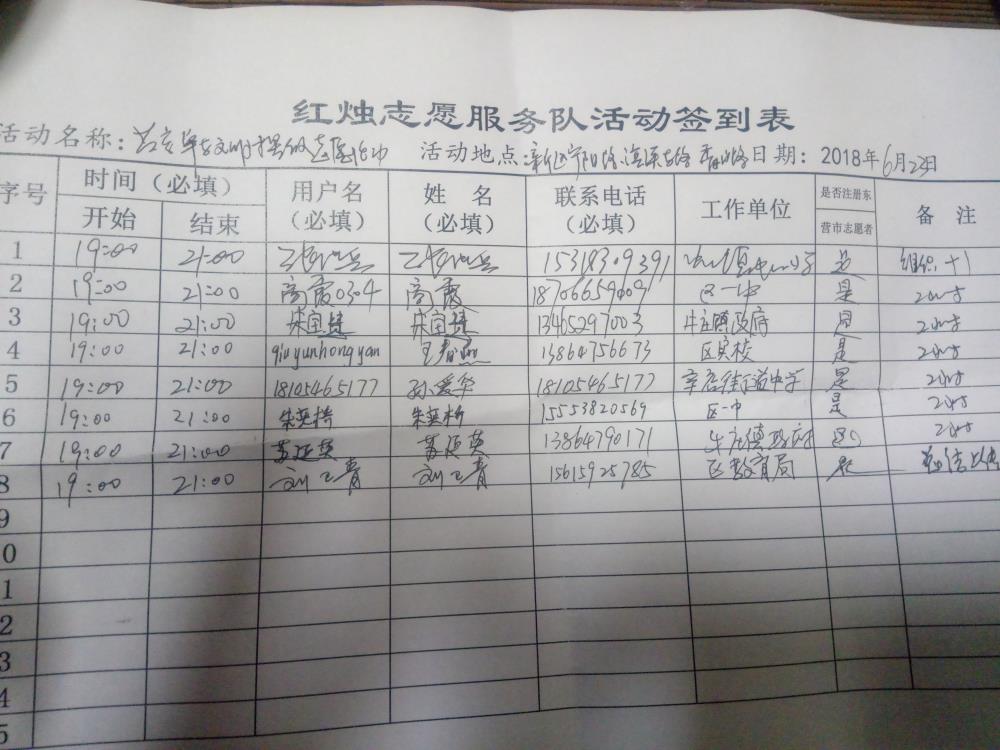 红烛志愿服务队活动签到表
活动名称： 活动地点： 日期：2018年6月22日
序号 时间（必填） 用户名（必填） 姓 名（必填） 联系电话（必填） 工作单位 是否注册东营市志愿者 备 注
开始 结束
1 19:00 21:00 15318309391 是 组织+1
2 19:00 21:00 高霞0304 高霞 18706659009 区一中 是
3 19:00 21:00 宋宝捷 宋宝捷 13465297003 牛庄镇政府 是
4 19:00 21:00 qiuyunhongyan 13864756673 区实校 是
5 19:00 21:00 18105465177 孙爱华 18105465177 辛店街道中学 是
6 19:00 21:00 朱英桥 朱英桥 15553820569 区一中 是
7 19:00 21:00 苏延英 苏延英 13864790171 牛庄镇政府 是
8 19:00 21:00 刘卫青 刘卫青 15615925785 区教育局 是
9
0
1
2
3
4
5